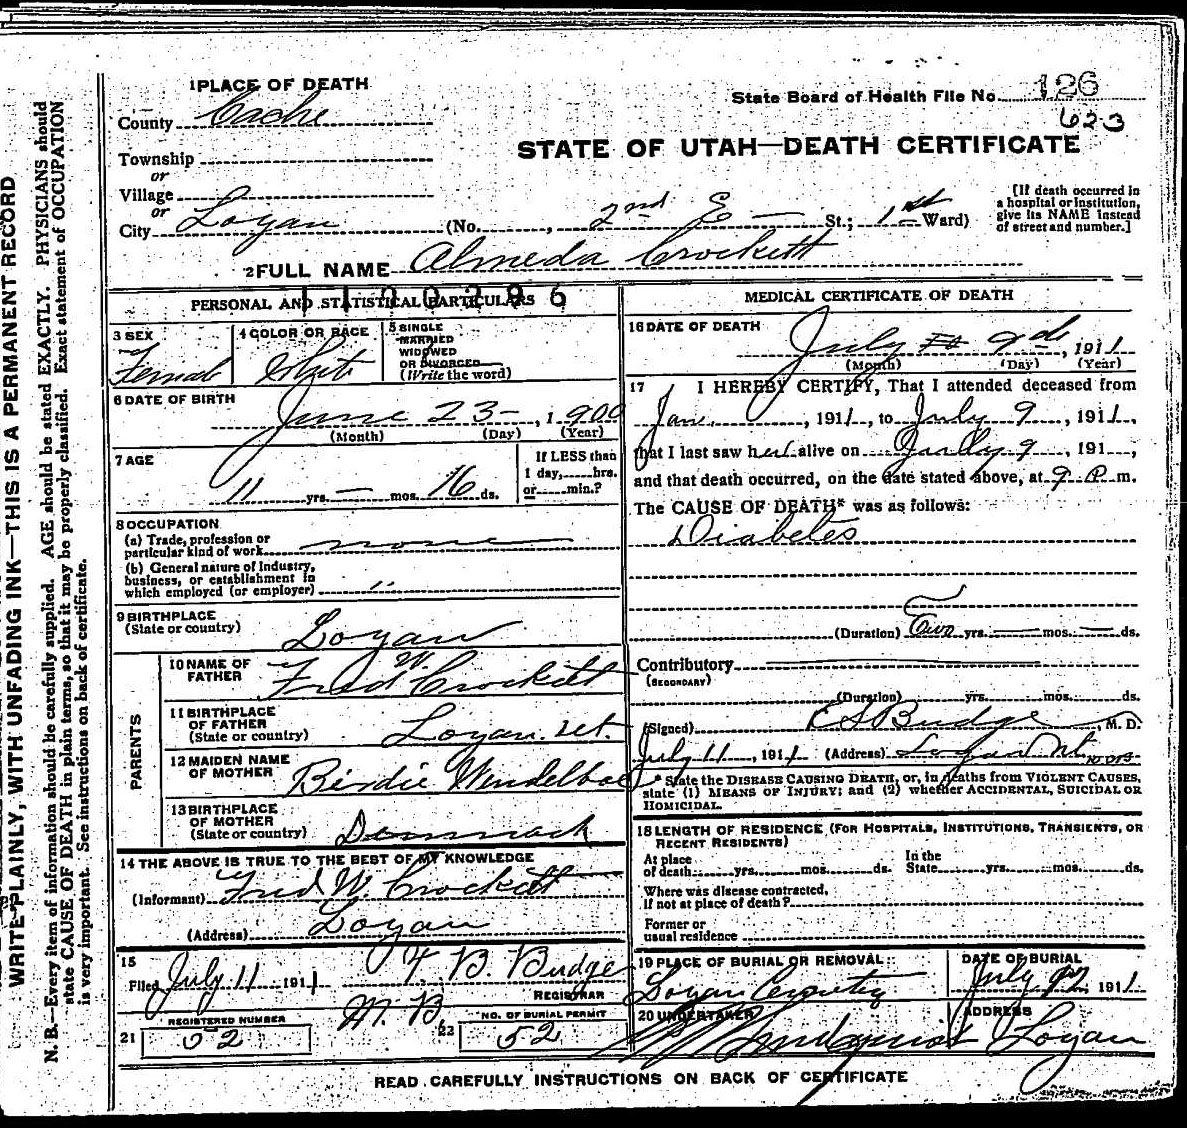 WRITE PLAINLY, WITH UNFADING INK—THIS IS A PERMANENT RECORD
N. B.—Every item of information should be carefully supplied. AGE should be stated EXACTLY. PHYSICIANS should
state CAUSE OF DEATH in plain terms, so that it may be properly classified. Exact statement of OCCUPATION
is very important. See instructions on back of certificate.
1 PLACE OF DEATH
County Cache
Township
or
Village
or
City Logan (No. , 2nd E — St.; 1st Ward)
State Board of Health File No. 126
623
STATE OF UTAH—DEATH CERTIFICATE
[If death occurred in
a hospital or institution,
give its NAME instead
of street and number.]
2 FULL NAME Almeda Crockett
PERSONAL AND STATISTICAL PARTICULARS
3 SEX
Female
4 COLOR OR RACE
White
5 SINGLE
MARRIED
WIDOWED
OR DIVORCED
(Write the word)
6 DATE OF BIRTH
June 23 —, 1900
(Month) (Day) (Year)
7 AGE
11 yrs. — mos. 16 ds.
If LESS than
1 day, hrs.
or min.?
8 OCCUPATION
(a) Trade, profession or
particular kind of work none
(b) General nature of Industry,
business, or establishment in
which employed (or employer) "
9 BIRTHPLACE
(State or country) Logan
PARENTS
10 NAME OF
FATHER Fred W. Crockett
11 BIRTHPLACE
OF FATHER
(State or country) Logan. Ut.
12 MAIDEN NAME
OF MOTHER Birdie
13 BIRTHPLACE
OF MOTHER
(State or country) Denmark
14 THE ABOVE IS TRUE TO THE BEST OF MY KNOWLEDGE
(Informant) Fred W. Crockett
(Address) Logan
15
Filed July 11 1911 B. Budge
REGISTRAR
21 REGISTERED NUMBER
52
22 NO. OF BURIAL PERMIT
52
MEDICAL CERTIFICATE OF DEATH
16 DATE OF DEATH
July 9, 1911
(Month) (Day) (Year)
17 I HEREBY CERTIFY, That I attended deceased from
Jan. , 1911, to July 9, 1911,
that I last saw her alive on July 9, 191 ,
and that death occurred, on the date stated above, at 9 P. m.
The CAUSE OF DEATH* was as follows:
Diabetes
(Duration) Two yrs. — mos. — ds.
Contributory
(SECONDARY)
(Duration) yrs. mos. ds.
(Signed) Budge, M. D.
July 11, 1911 (Address) Logan
* State the DISEASE CAUSING DEATH, or, in deaths from VIOLENT CAUSES,
state (1) MEANS OF INJURY; and (2) whether ACCIDENTAL, SUICIDAL OR
HOMICIDAL.
18 LENGTH OF RESIDENCE (FOR HOSPITALS, INSTITUTIONS, TRANSIENTS, OR
RECENT RESIDENTS)
At place
of death yrs. mos. ds.
In the
State yrs. mos. ds.
Where was disease contracted,
if not at place of death?
Former or
usual residence
19 PLACE OF BURIAL OR REMOVAL
Logan
DATE OF BURIAL
July 1911
20 UNDERTAKER
ADDRESS
Logan
READ CAREFULLY INSTRUCTIONS ON BACK OF CERTIFICATE